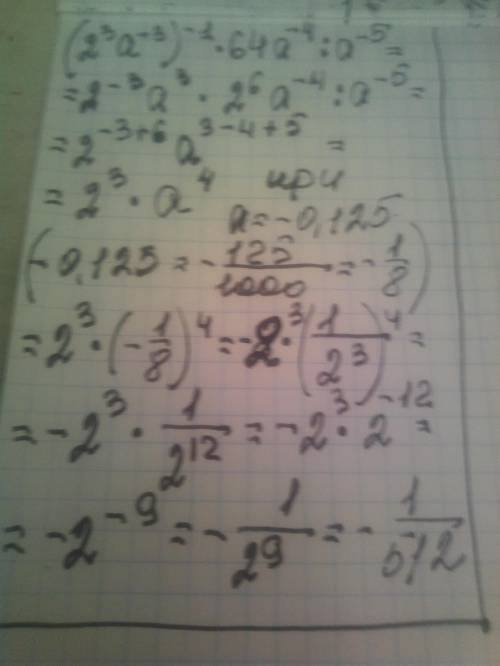 (2³a⁻³)⁻¹·64a⁻⁴:a⁻⁵=
=2⁻³a³·2⁶a⁻⁴:a⁻⁵=
=2⁻³⁺⁶a³⁻⁴⁺⁵=
=2³·a⁴ при
a=-0,125
(-0,125=-125/1000=-1/8)
=2³·(-1/8)⁴=-2³·(1/2³)⁴=
=-2³·1/2¹²=-2³·2⁻¹²=
=-2⁻⁹=-1/2⁹=-1/512